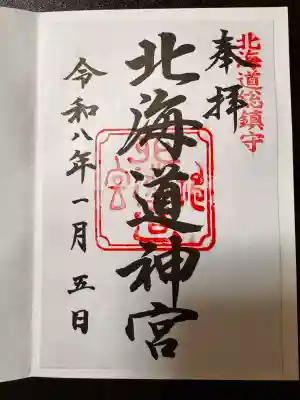 北海道総鎮守
奉拝
北海道神宮
令和八年一月五日